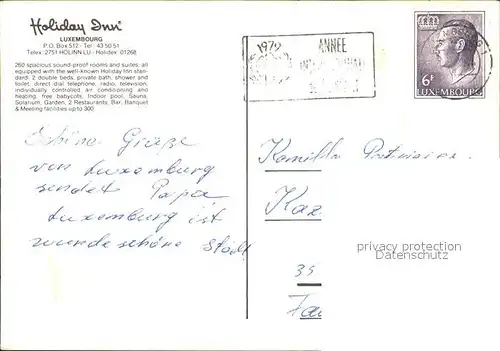 Holiday Inn®
LUXEMBOURG
P.O. Box 512 - Tel: 43 50 51
Telex: 2751 HOLINN LU - Holidex: 01268
260 spacious sound-proof rooms and suites; all
equipped with the well-known Holiday Inn stan-
dard: 2 double beds, private bath, shower and
toilet, direct dial telephone, radio, television,
individually controlled air conditioning and
heating, free babycots. Indoor pool, Sauna,
Solarium, Garden, 2 Restaurants, Bar, Banquet
& Meeting facilities up to 300.
1979 ANNEE
6F
LUXEMBOURG
Schöne Grüße
von Luxemburg
sendet Papa
Luxemburg ist
wunde schöne Stadt
Kamilla
Kaz
35
privacy protection
Datenschutz